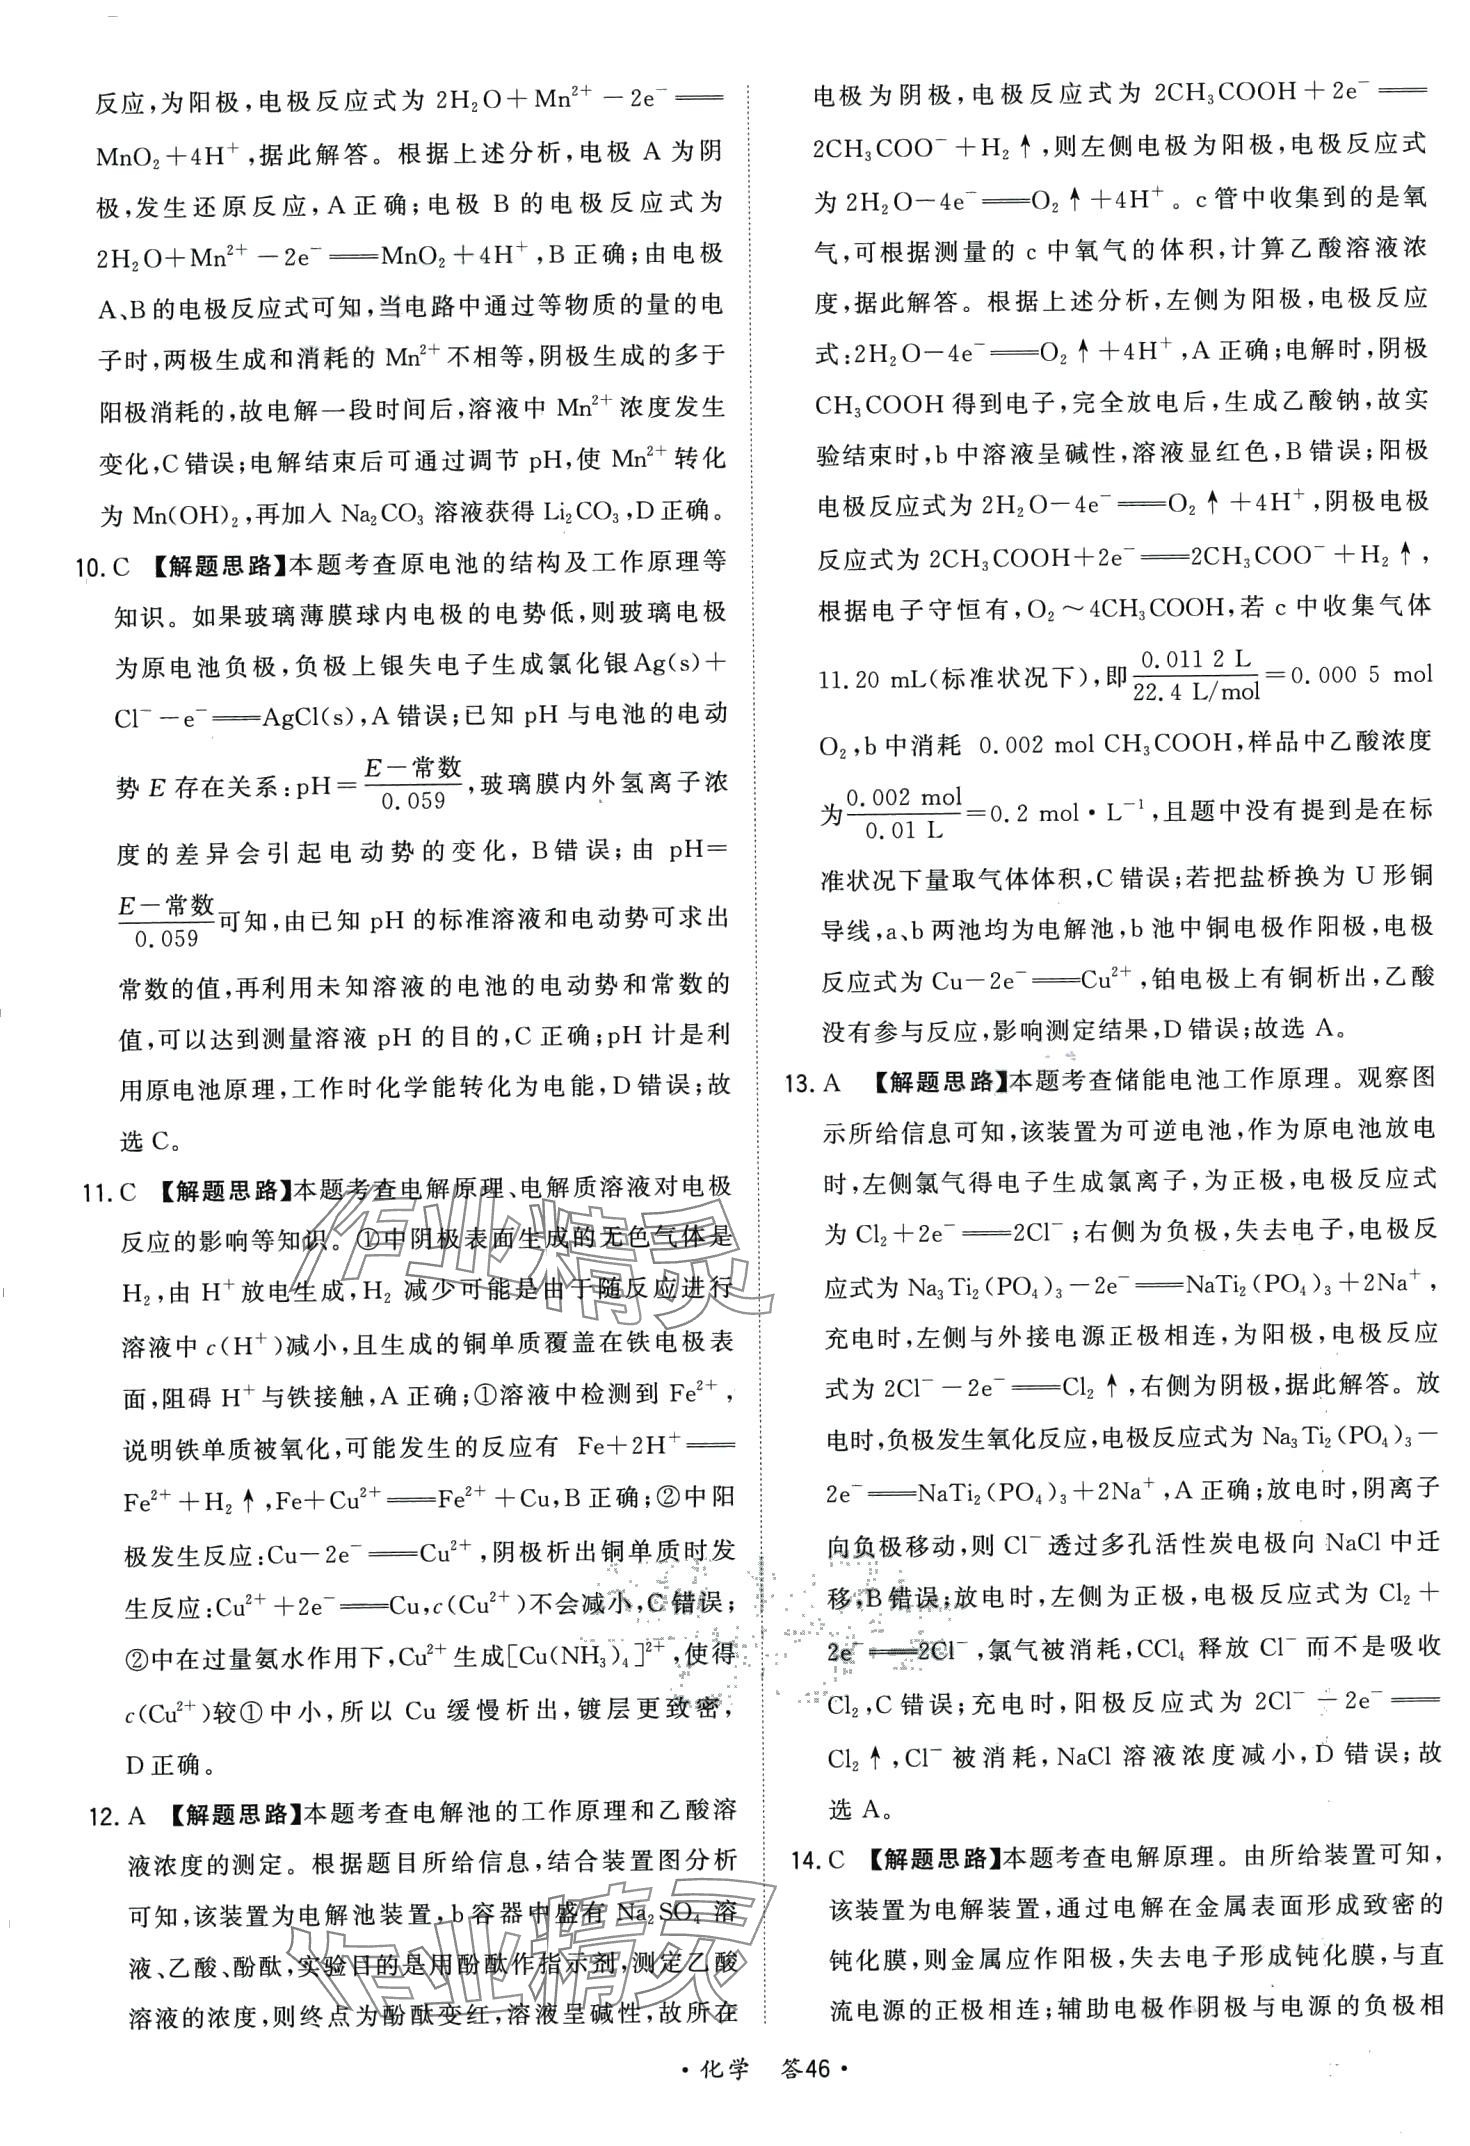 反应,为阳极,电极反应式为 2H₂O+Mn²⁺-2e⁻══
MnO₂+4H⁺,据此解答。根据上述分析,电极 A 为阴
极,发生还原反应,A正确;电极 B 的电极反应式为
2H₂O+Mn²⁺-2e⁻══MnO₂+4H⁺,B 正确;由电极
A、B的电极反应式可知,当电路中通过等物质的量的电
子时,两极生成和消耗的 Mn²⁺不相等,阴极生成的多于
阳极消耗的,故电解一段时间后,溶液中 Mn²⁺浓度发生
变化,C错误;电解结束后可通过调节 pH,使 Mn²⁺转化
为 Mn(OH)₂,再加入 Na₂CO₃ 溶液获得 Li₂CO₃,D正确。
10. C 【解题思路】本题考查原电池的结构及工作原理等
知识。如果玻璃薄膜球内电极的电势低,则玻璃电极
为原电池负极,负极上银失电子生成氯化银Ag(s)+
Cl⁻-e⁻══AgCl(s),A 错误;已知 pH 与电池的电动
势 E 存在关系:pH=(E-常数)/0.059,玻璃膜内外氢离子浓
度的差异会引起电动势的变化,B错误;由 pH=
(E-常数)/0.059可知,由已知 pH 的标准溶液和电动势可求出
常数的值,再利用未知溶液的电池的电动势和常数的
值,可以达到测量溶液 pH 的目的,C 正确;pH 计是利
用原电池原理,工作时化学能转化为电能,D错误;故
选 C。
11. C 【解题思路】本题考查电解原理、电解质溶液对电极
反应的影响等知识。①中阴极表面生成的无色气体是
H₂,由 H⁺放电生成,H₂ 减少可能是由于随反应进行
溶液中 c(H⁺)减小,且生成的铜单质覆盖在铁电极表
面,阻碍 H⁺与铁接触,A 正确;①溶液中检测到 Fe²⁺,
说明铁单质被氧化,可能发生的反应有 Fe+2H⁺══
Fe²⁺+H₂↑,Fe+Cu²⁺══Fe²⁺+Cu,B正确;②中阳
极发生反应:Cu-2e⁻══Cu²⁺,阴极析出铜单质时发
生反应:Cu²⁺+2e⁻══Cu,c(Cu²⁺)不会减小,C错误;
②中在过量氨水作用下,Cu²⁺生成[Cu(NH₃)₄]²⁺,使得
c(Cu²⁺)较①中小,所以 Cu 缓慢析出,镀层更致密,
D正确。
12. A 【解题思路】本题考查电解池的工作原理和乙酸溶
液浓度的测定。根据题目所给信息,结合装置图分析
可知,该装置为电解池装置,b容器中盛有 Na₂SO₄ 溶
液、乙酸、酚酞,实验目的是用酚酞作指示剂,测定乙酸
溶液的浓度,则终点为酚酞变红,溶液呈碱性,故所在
电极为阴极,电极反应式为 2CH₃COOH+2e⁻══
2CH₃COO⁻+H₂↑,则左侧电极为阳极,电极反应式
为2H₂O-4e⁻══O₂↑+4H⁺。c管中收集到的是氧
气,可根据测量的 c 中氧气的体积,计算乙酸溶液浓
度,据此解答。根据上述分析,左侧为阳极,电极反应
式:2H₂O-4e⁻══O₂↑+4H⁺,A正确;电解时,阴极
CH₃COOH得到电子,完全放电后,生成乙酸钠,故实
验结束时,b中溶液呈碱性,溶液显红色,B错误;阳极
电极反应式为2H₂O-4e⁻══O₂↑+4H⁺,阴极电极
反应式为 2CH₃COOH+2e⁻══2CH₃COO⁻+H₂↑,
根据电子守恒有,O₂~4CH₃COOH,若 c 中收集气体
11.20 mL(标准状况下),即(0.011 2 L)/(22.4 L/mol)=0.000 5 mol
O₂,b中消耗 0.002 mol CH₃COOH,样品中乙酸浓度
为(0.002 mol)/(0.01 L)=0.2 mol·L⁻¹,且题中没有提到是在标
准状况下量取气体体积,C错误;若把盐桥换为 U 形铜
导线,a、b两池均为电解池,b池中铜电极作阳极,电极
反应式为 Cu-2e⁻══Cu²⁺,铂电极上有铜析出,乙酸
没有参与反应,影响测定结果,D错误;故选 A。
13. A 【解题思路】本题考查储能电池工作原理。观察图
示所给信息可知,该装置为可逆电池,作为原电池放电
时,左侧氯气得电子生成氯离子,为正极,电极反应式
为 Cl₂+2e⁻══2Cl⁻;右侧为负极,失去电子,电极反
应式为 Na₃Ti₂(PO₄)₃-2e⁻══NaTi₂(PO₄)₃+2Na⁺,
充电时,左侧与外接电源正极相连,为阳极,电极反应
式为 2Cl⁻-2e⁻══Cl₂↑,右侧为阴极,据此解答。放
电时,负极发生氧化反应,电极反应式为 Na₃Ti₂(PO₄)₃-
2e⁻══NaTi₂(PO₄)₃+2Na⁺,A正确;放电时,阴离子
向负极移动,则 Cl⁻透过多孔活性炭电极向 NaCl 中迁
移,B错误;放电时,左侧为正极,电极反应式为 Cl₂+
2e⁻══2Cl⁻,氯气被消耗,CCl₄ 释放 Cl⁻而不是吸收
Cl₂,C 错误;充电时,阳极反应式为 2Cl⁻-2e⁻══
Cl₂↑,Cl⁻被消耗,NaCl 溶液浓度减小,D 错误;故
选 A。
14. C 【解题思路】本题考查电解原理。由所给装置可知,
该装置为电解装置,通过电解在金属表面形成致密的
钝化膜,则金属应作阳极,失去电子形成钝化膜,与直
流电源的正极相连;辅助电极作阴极与电源的负极相
·化学 答46·
作业精灵
作业精灵